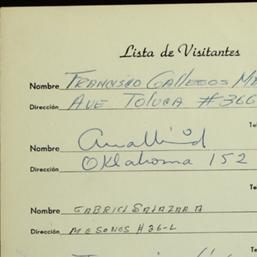 Lista de Visitantes
Nombre FRANCISCO GALLEGOS
Dirección AVE TOLUCA #366
Te
Nombre
Dirección OKlahoma 152
Te
Nombre GABRIEL SALAZAR A
Dirección MESONES #36-L
Te